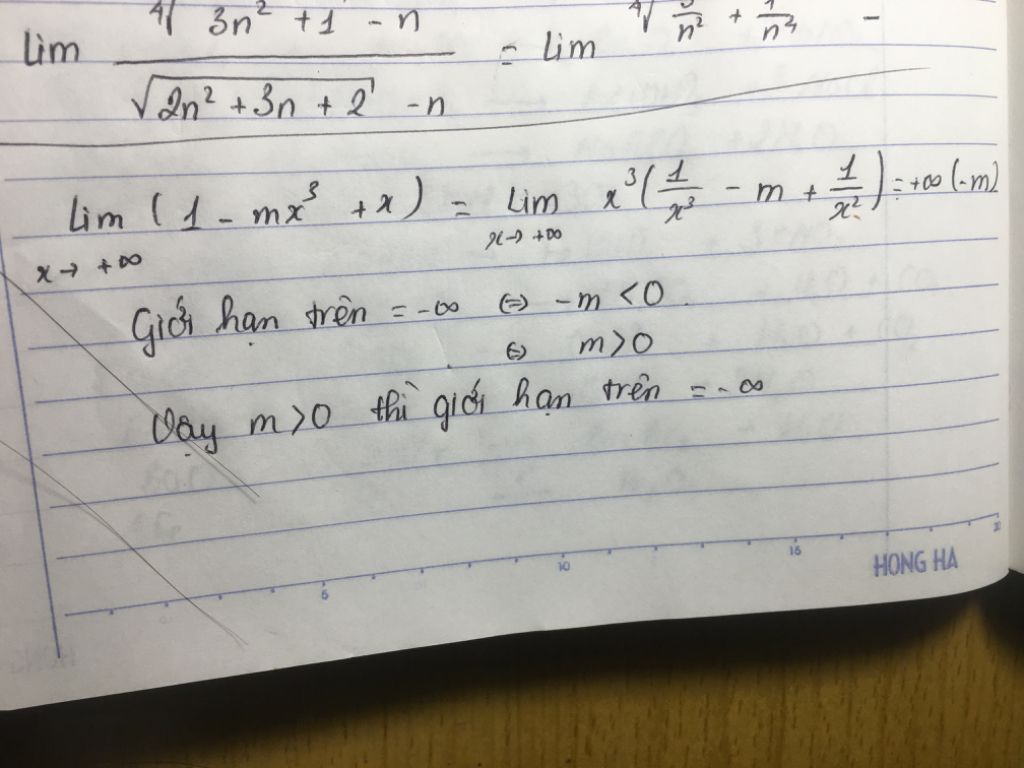 lim (∜(3n² + 1) - n) / (√(2n² + 3n + 2) - n) = lim ∜(3/n² + 1/n⁴) -
lim x→ +∞ (1 - mx³ + x) = lim x→ +∞ x³(1/x³ - m + 1/x²) = +∞ (-m)
Giới hạn trên = -∞ ⇔ -m < 0.
⇔ m > 0
Vậy m > 0 thì giới hạn trên = -∞
5 10 15
HONG HA